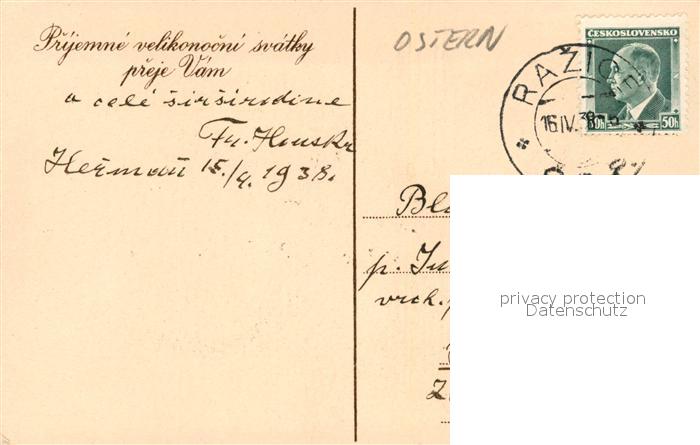 Příjemné velikonoční svátky
přeje Vám
a celé širší rodine
Fr. Houska
Heřmaň 15./4. 1938.
OSTERN
ČESKOSLOVENSKO
50h 50h
RAŽICE
16.IV.38
p.
vrch.
privacy protection
Datenschutz